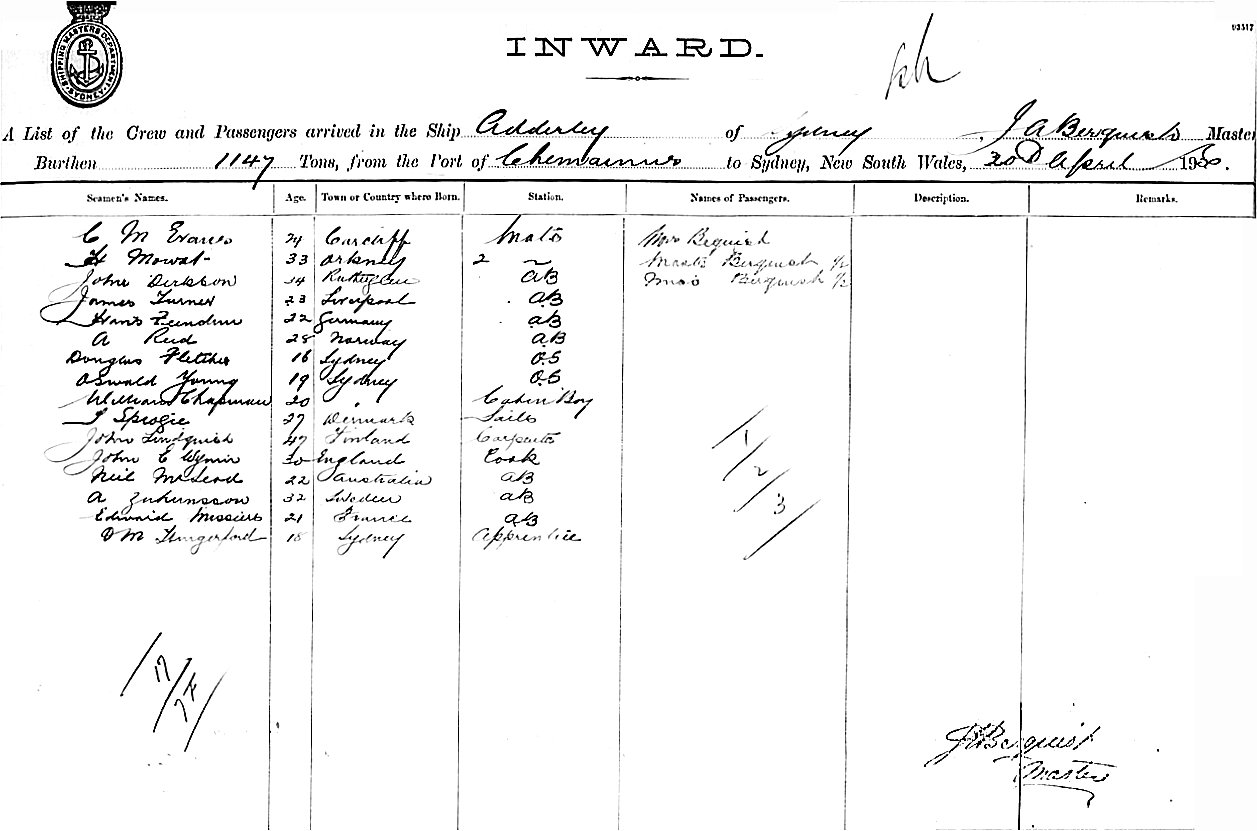 03517
SHIPPING MASTERS DEPARTMENT SYDNEY
INWARD.
A List of the Crew and Passengers arrived in the Ship Adderley of Sydney, J A Berquist Master
Burthen 1147 Tons, from the Port of Chemainus to Sydney, New South Wales, 30th April 190
Seamen's Names. Age. Town or Country where Born. Station. Names of Passengers. Description. Remarks.
C M Evans 24 Cardiff Mate Mrs Berquish
H Mowat 33 Orkney 2 ~ Mastr Berquish 1/2
John Dickson 34 AB Miss Berquish 1/2
James Turner 23 Liverpool AB
Hans 22 Germany AB
A Reid 28 Norway AB
Douglas Fletcher 16 Sydney OS
Oswald Young 19 Sydney OS
William Chapman 20 " Cabin Boy
27 Denmark Sails
John Lindquish 47 Finland Carpenter
John E 30 England Cook
Neil McLeod 22 Australia AB
A 32 Sweden AB
Edward 21 France AB
M Hungerford 18 Sydney Apprentice
1/2/3/
/17/
J A Berquist
Master